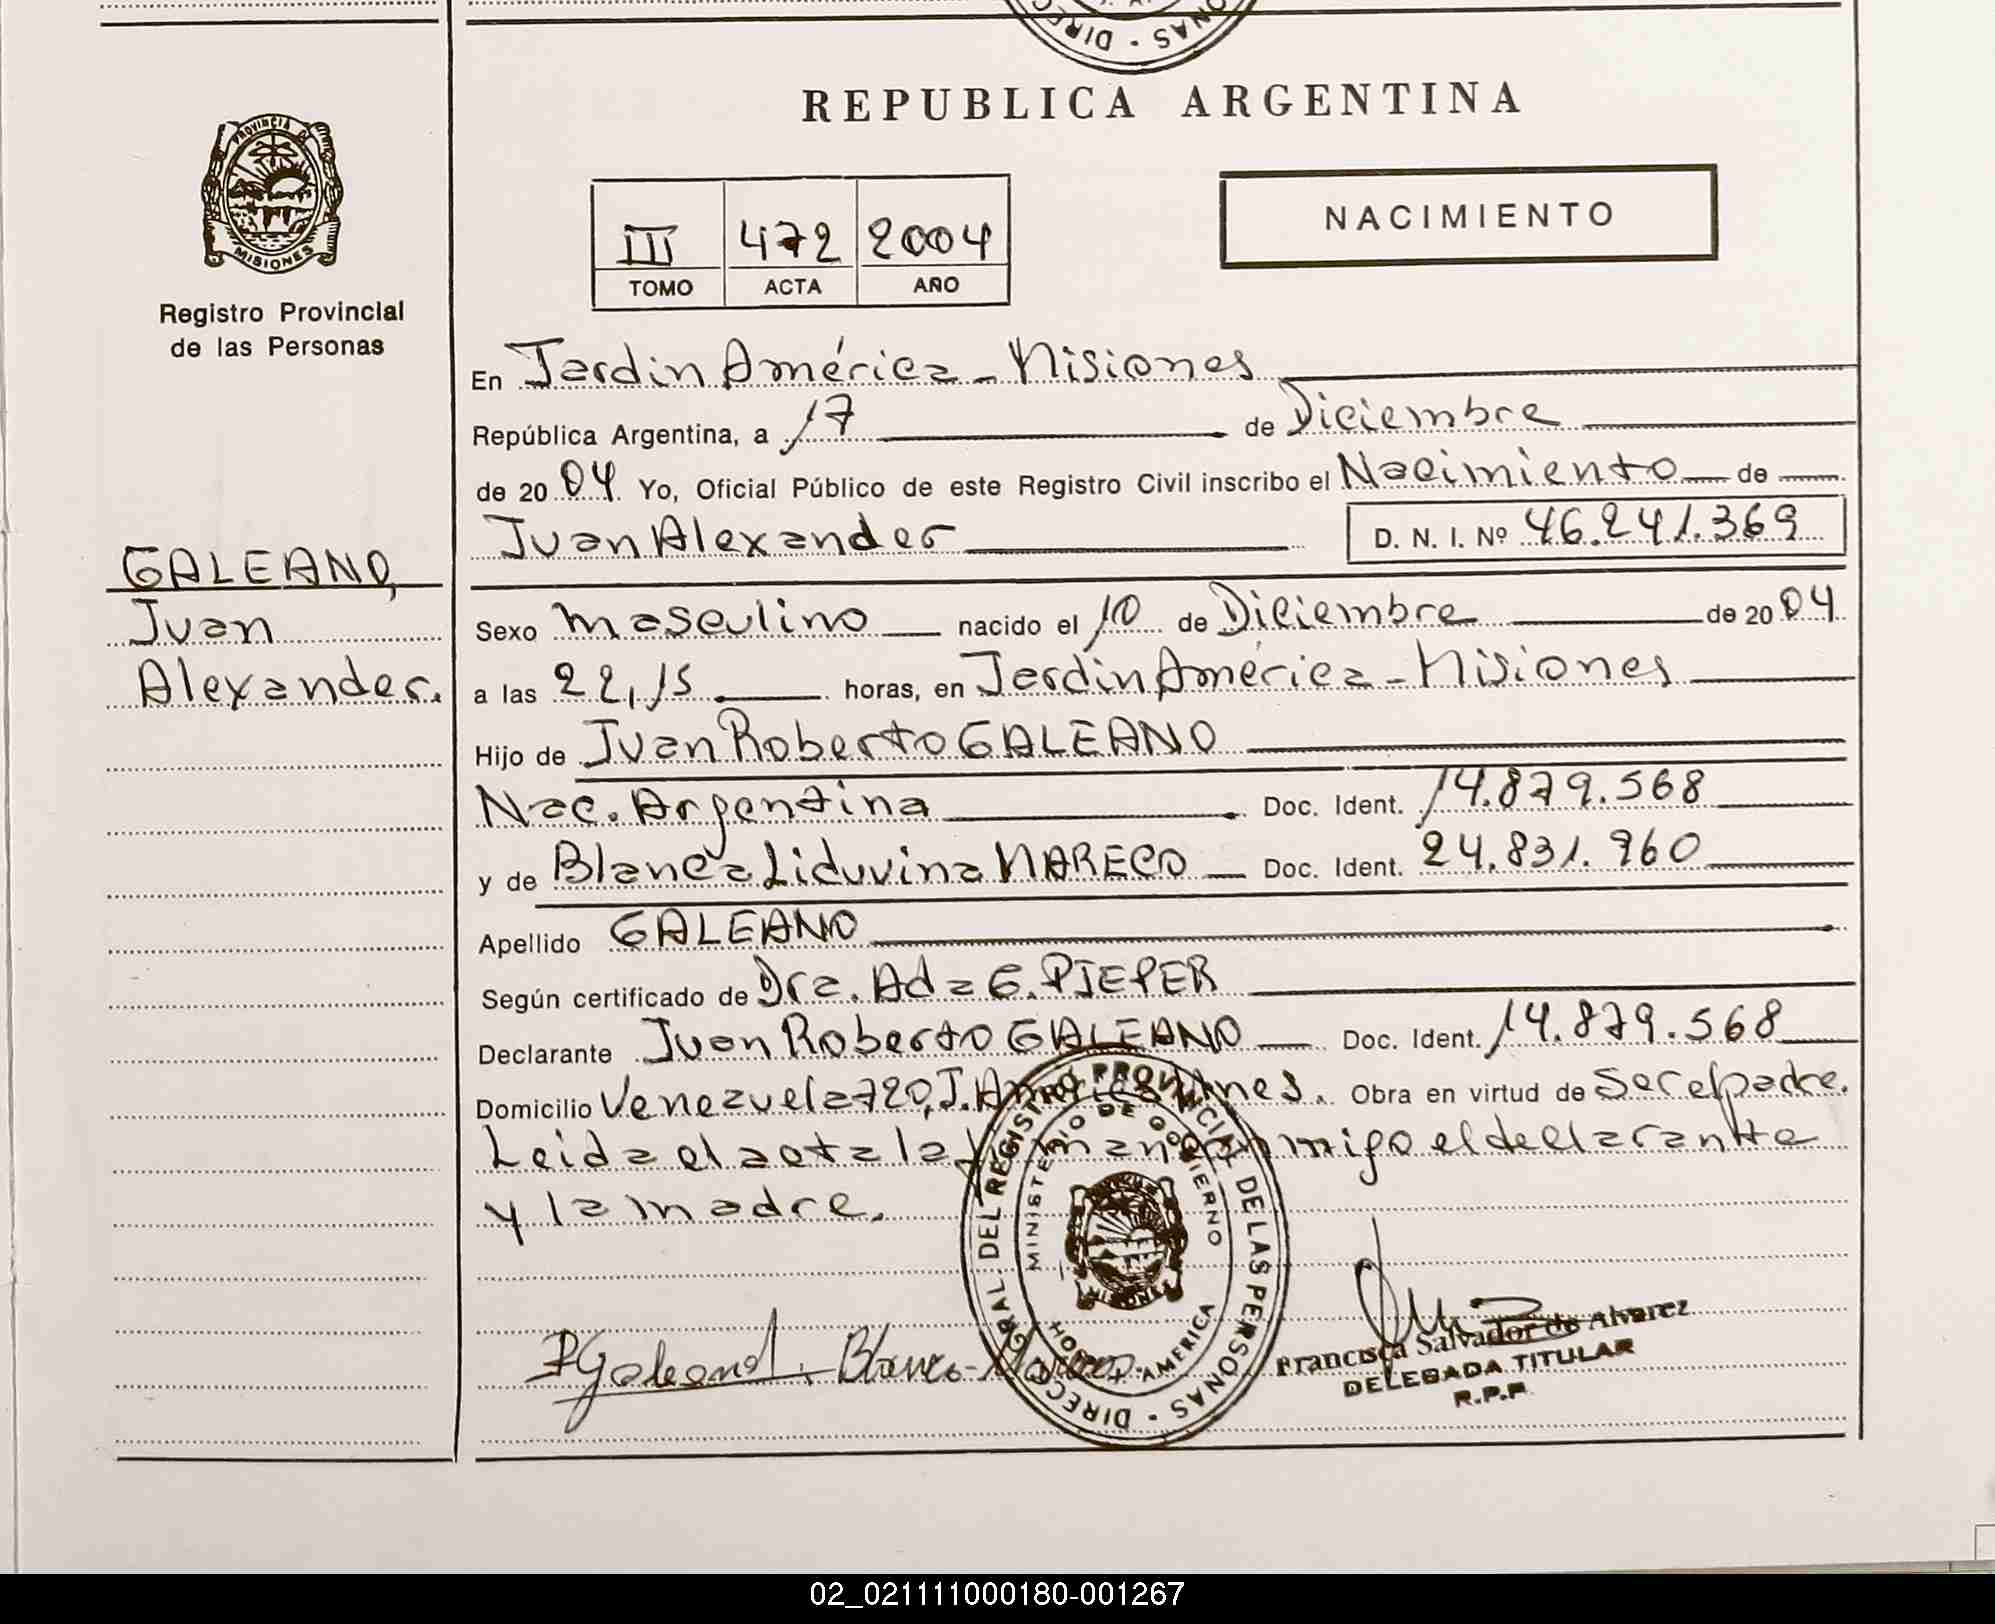 DIRECC · SONAS
REPUBLICA ARGENTINA
PROVINCIA DE
MISIONES
Registro Provincial
de las Personas
III 472 2004
TOMO ACTA AÑO
NACIMIENTO
En Jardin América - Misiones
República Argentina, a 17 de Diciembre
de 2004 Yo, Oficial Público de este Registro Civil inscribo el Nacimiento de
Juan Alexander D. N. I. Nº 46.241.369
GALEANO,
Juan
Alexander.
Sexo masculino nacido el 10 de Diciembre de 2004
a las 22,15 horas, en Jardin América - Misiones
Hijo de Juan Roberto GALEANO
Nac. Argentina Doc. Ident. 14.879.568
y de Blanca Liduvina NARECO Doc. Ident. 24.831.960
Apellido GALEANO
Según certificado de Dra. Ada G. PIEPER
Declarante Juan Roberto GALEANO Doc. Ident. 14.879.568
Domicilio Venezuela 720, J. América Mnes. Obra en virtud de ser el padre.
Leida el acta la firman conmigo el declarante
y la madre.
DIRECC GRAL DEL REGISTRO PROVINCIAL DE LAS PERSONAS
MINISTERIO DE GOBIERNO
AMERICA
MISIONES
Galeano Blanca
Francisca Salvador de Alvarez
DELEGADA TITULAR
R.P.P.
02_021111000180-001267